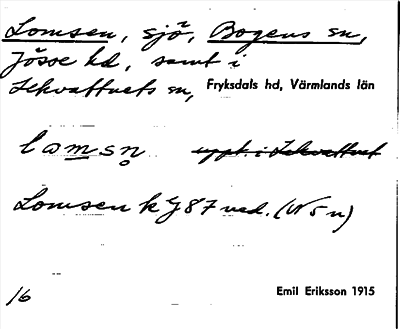 Lomsen, sjö, Bogens sn,
Jösse hd, samt i
Lekvattnets sn, Fryksdals hd, Värmlands län
lomsn̥ uppt. i Lekvattnet
Lomsen k 87 ned. (V 5 n)
16 Emil Eriksson 1915